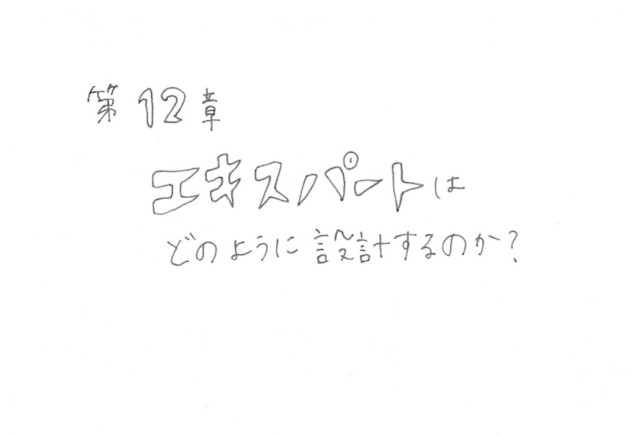 第12章
エキスパートは
どのように設計するのか?